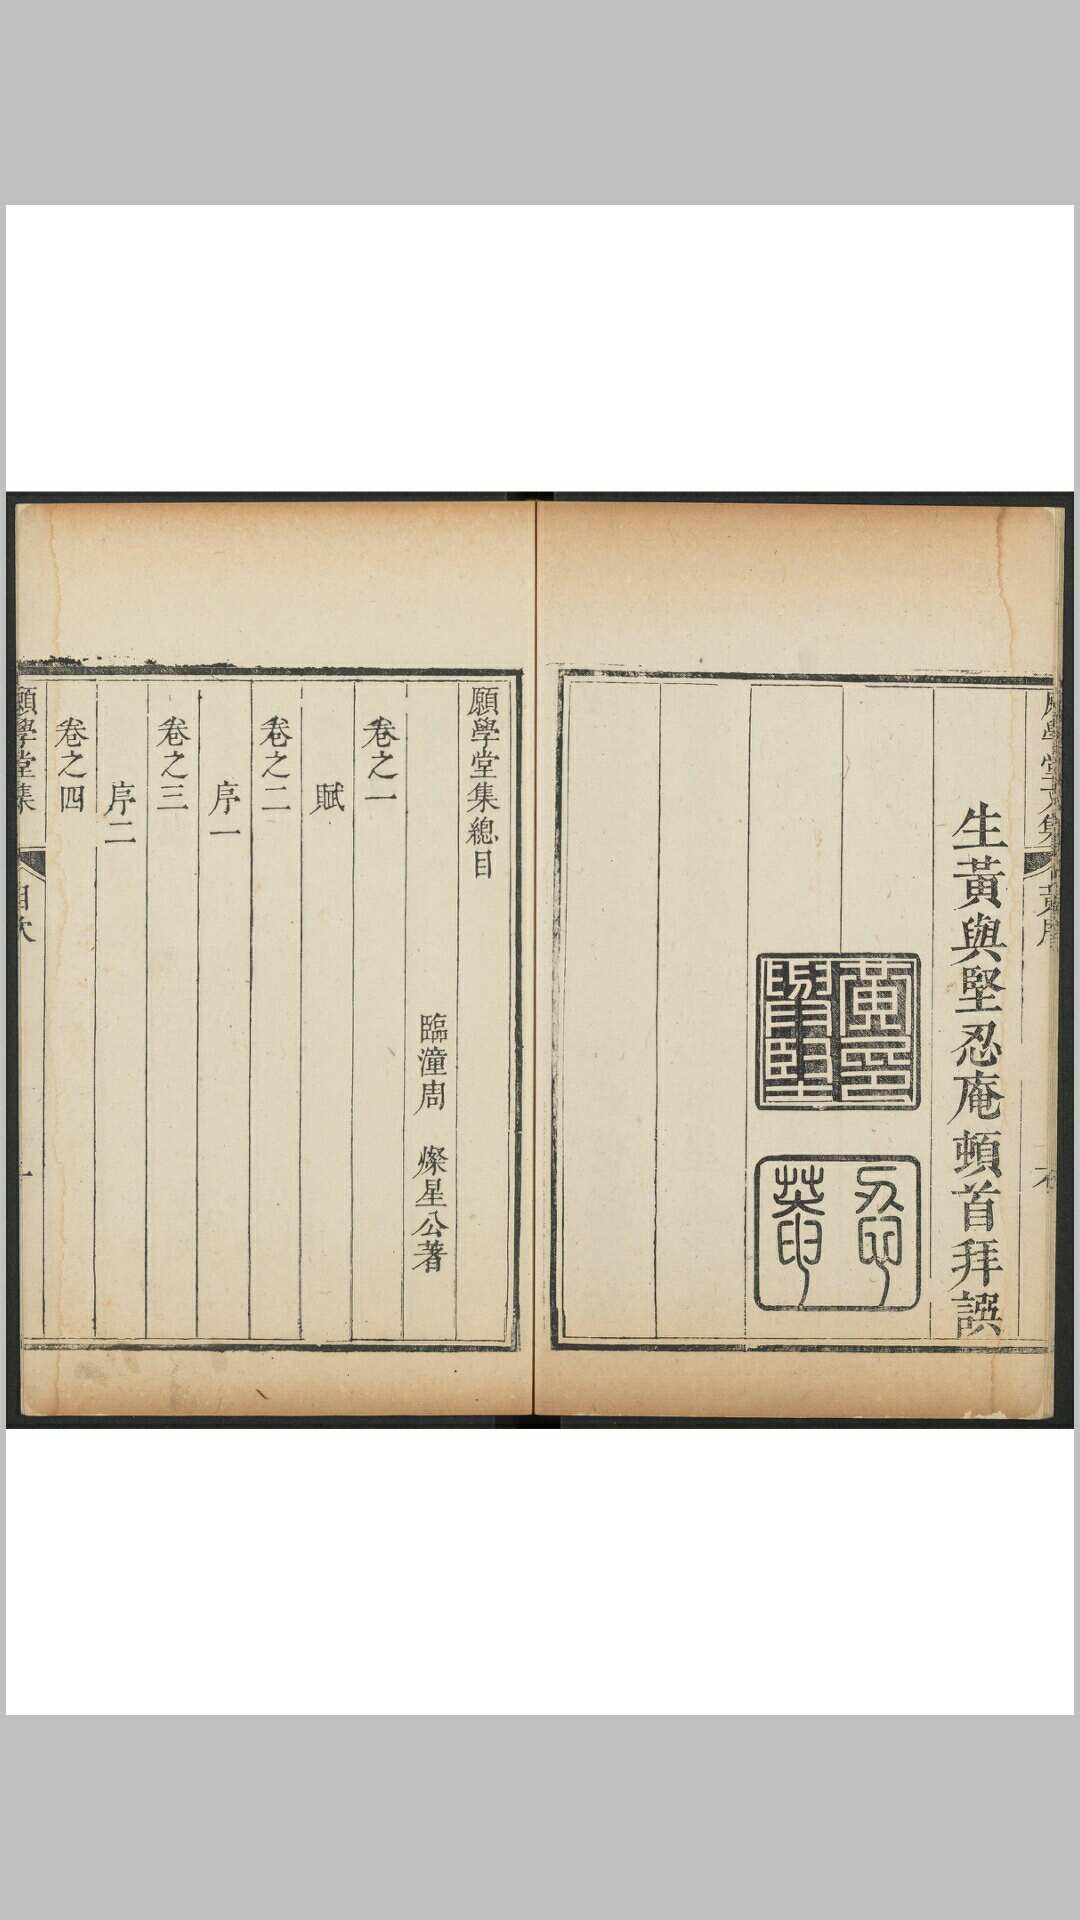 願學堂集 黃序
生黃與堅忍庵頓首拜譔
黃印與堅
忍菴
願學堂集總目
臨潼周 燦星公著
卷之一
賦
卷之二
序一
卷之三
序二
卷之四
願學堂集 目次 一